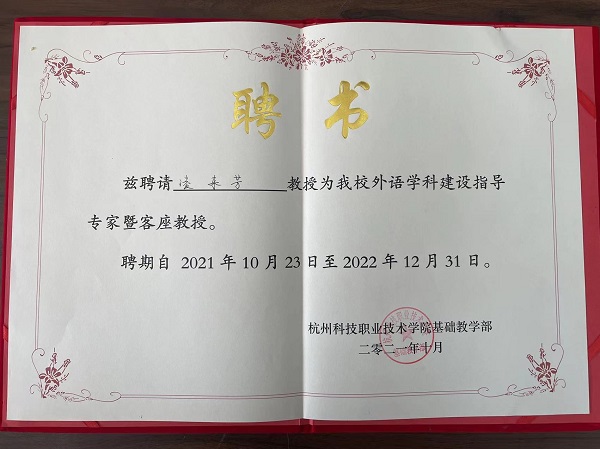 聘书
兹聘请凌来芳教授为我校外语学科建设指导
专家暨客座教授。
聘期自 2021 年 10 月 23 日至 2022 年 12 月 31 日。
杭州科技职业技术学院基础教学部
二零二一年十月